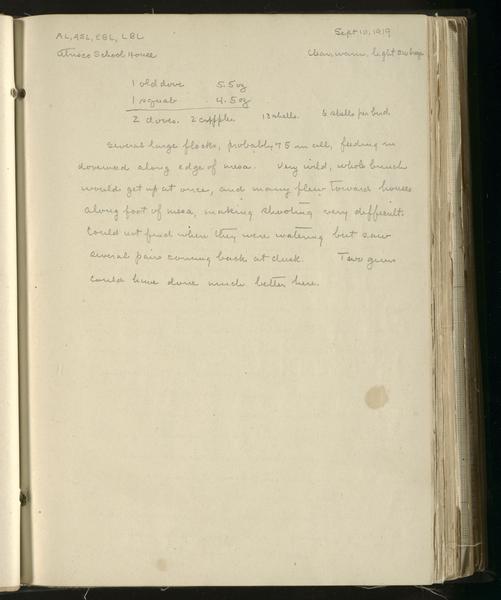 AL, ASL, EBL, LBL Sept 10, 1919
Atrisco School House Clear, warm, light SW breeze
1 old dove 5.5 oz
1 squab 4.5 oz
2 doves. 2 cripples 13 shells 6 shells per bird
Several large flocks, probably 75 in all, feeding in
doveweed along edge of mesa. Very wild, whole bunch
would get up at once, and many flew toward houses
along foot of mesa, making shooting very difficult.
Could not find where they were watering but saw
several pairs coming back at dusk. Two guns
could have done much better here.